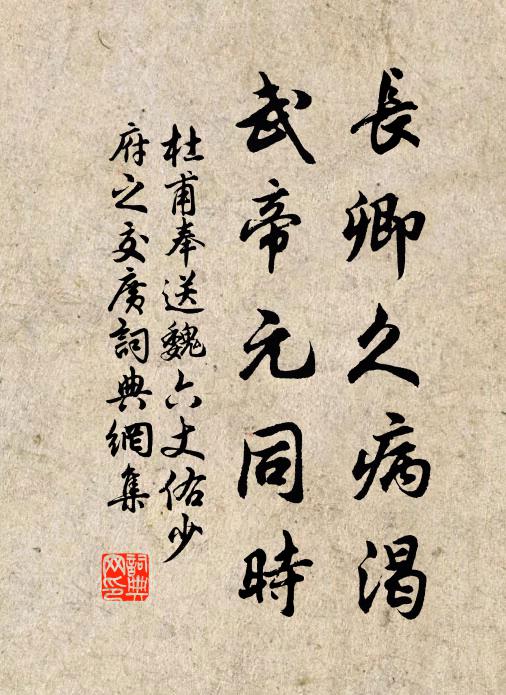 長卿久病渴
武帝元同時
杜甫奉送魏六丈佑少
府之交廣詞典網集
詞典
网印